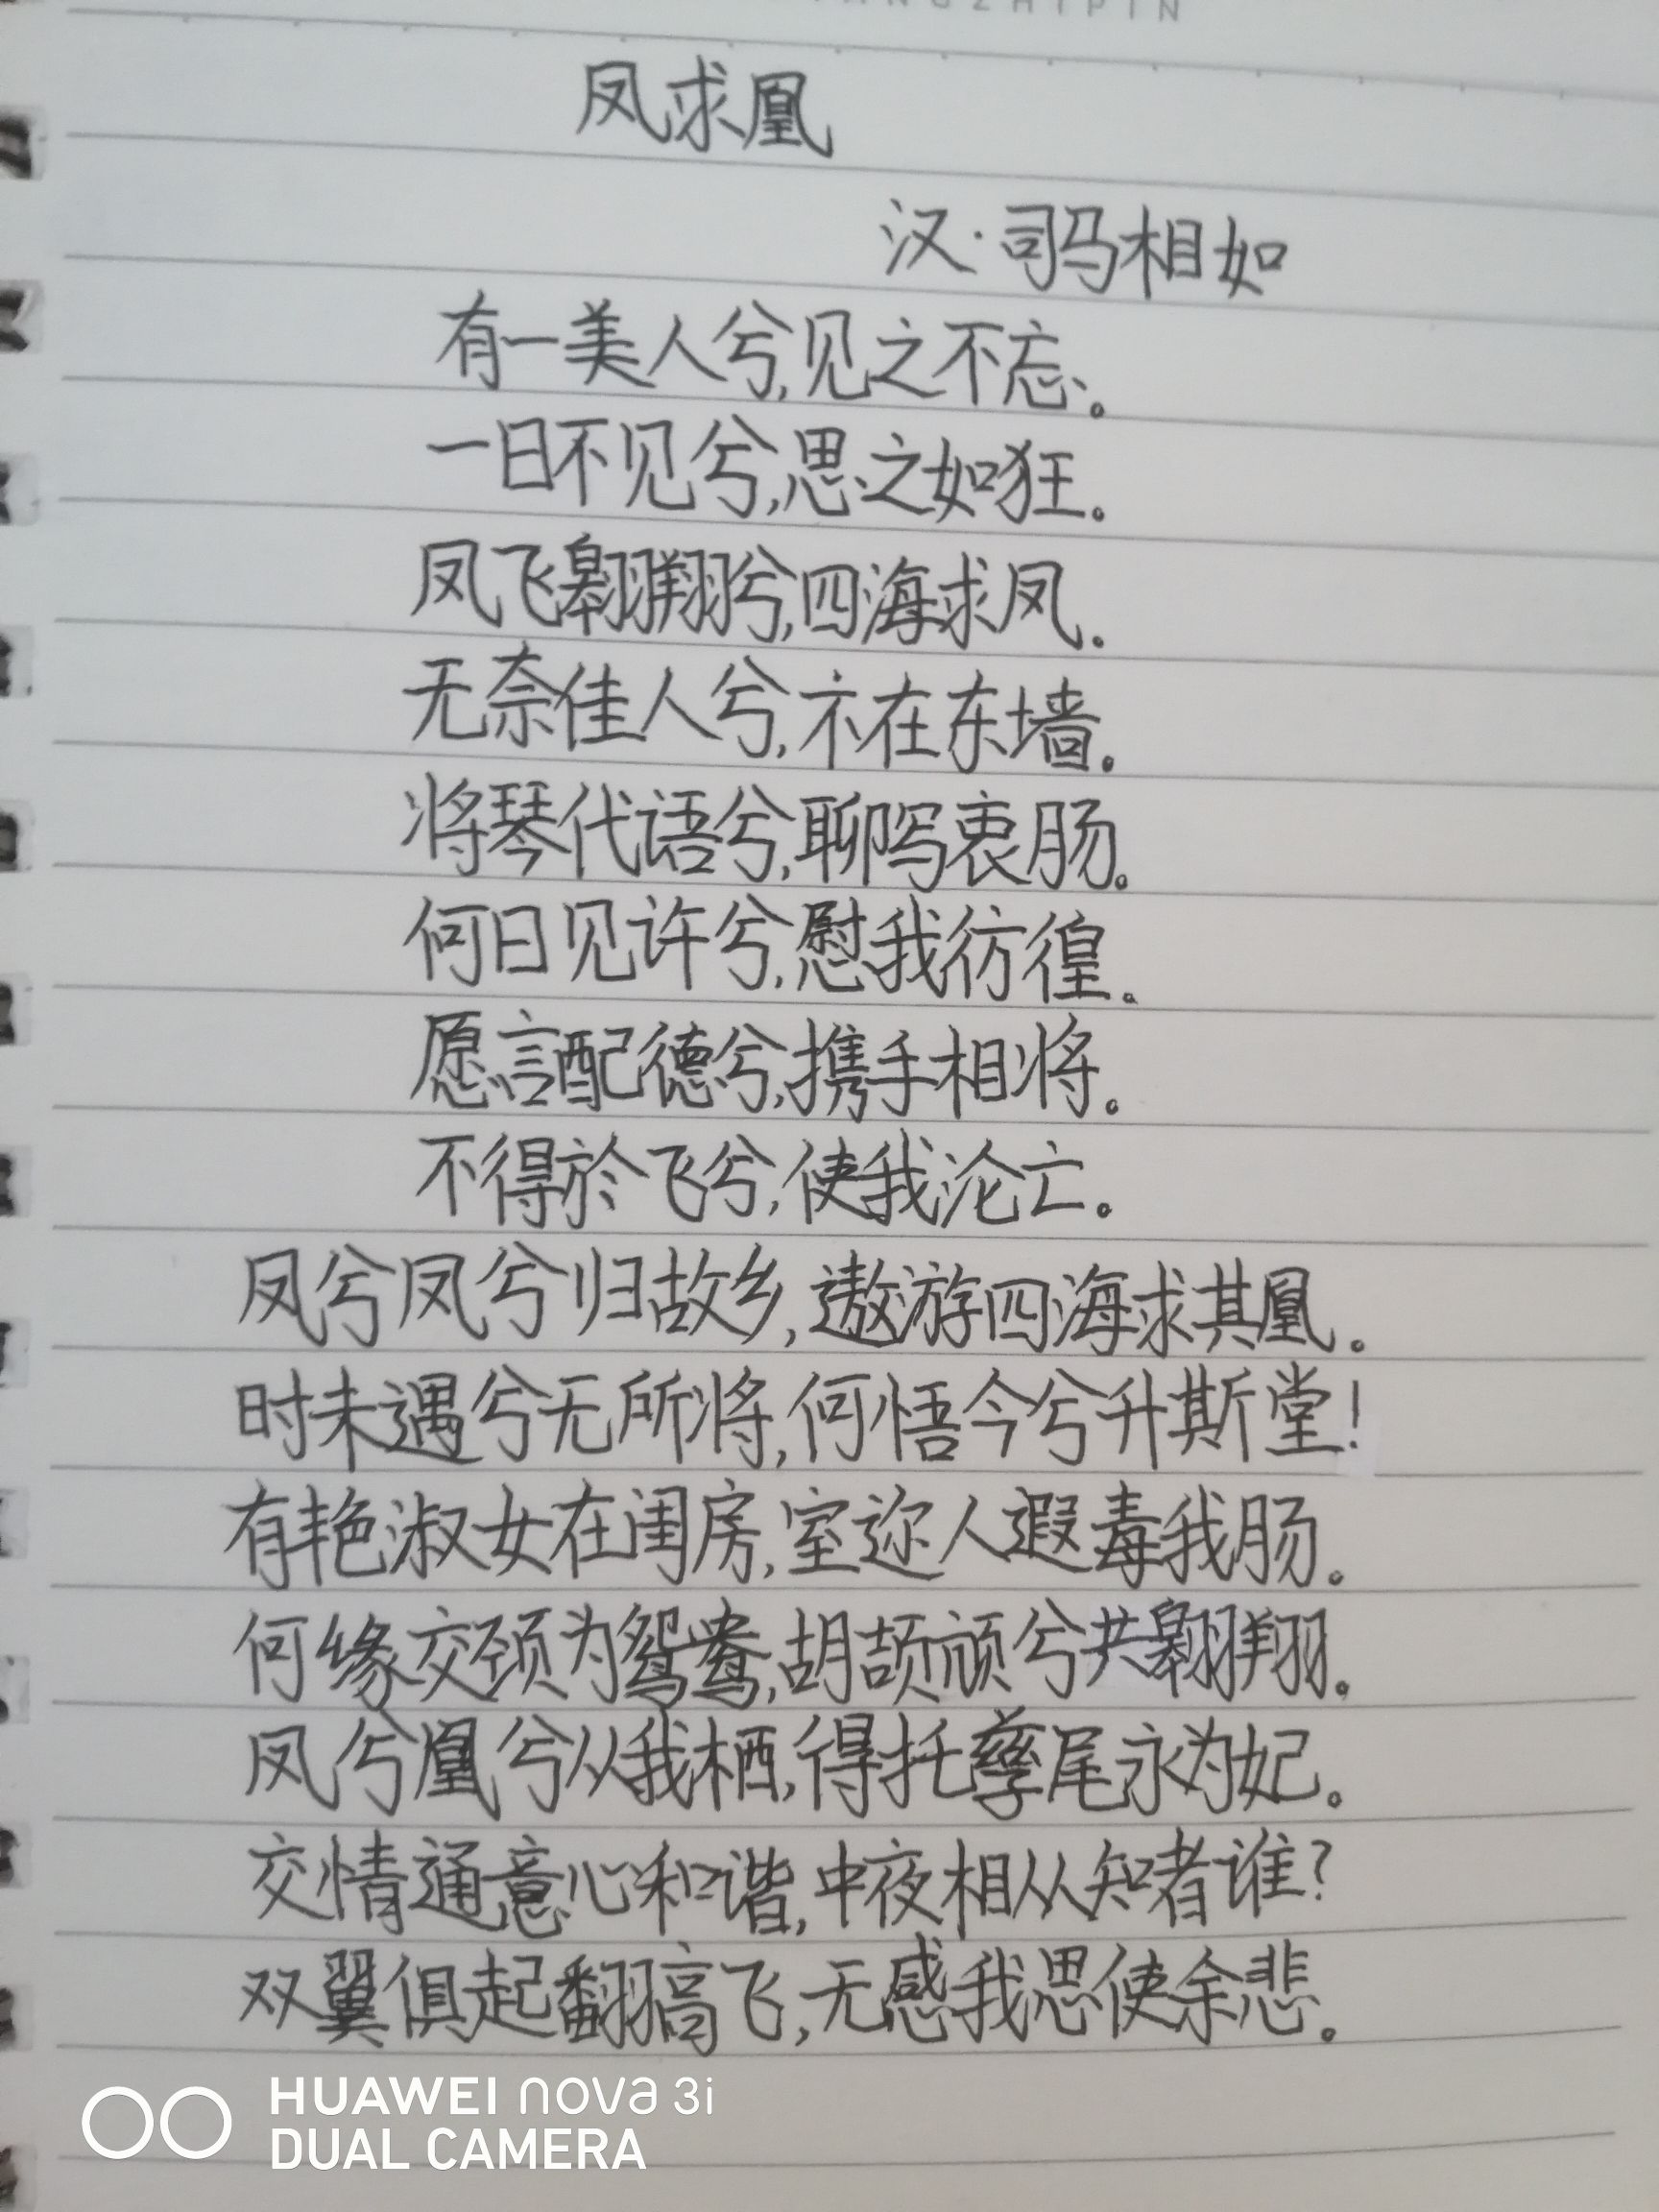 凤求凰
汉·司马相如
有一美人兮,见之不忘。
一日不见兮,思之如狂。
凤飞翱翔兮,四海求凤。
无奈佳人兮,不在东墙。
将琴代语兮,聊写衷肠。
何日见许兮,慰我彷徨。
愿言配德兮,携手相将。
不得於飞兮,使我沦亡。
凤兮凤兮归故乡,遨游四海求其凰。
时未遇兮无所将,何悟今兮升斯堂!
有艳淑女在闺房,室迩人遐毒我肠。
何缘交颈为鸳鸯,胡颉颃兮共翱翔。
凤兮凰兮从我栖,得托孳尾永为妃。
交情通意心和谐,中夜相从知者谁?
双翼俱起翻高飞,无感我思使余悲。
HUAWEI nova 3i
DUAL CAMERA